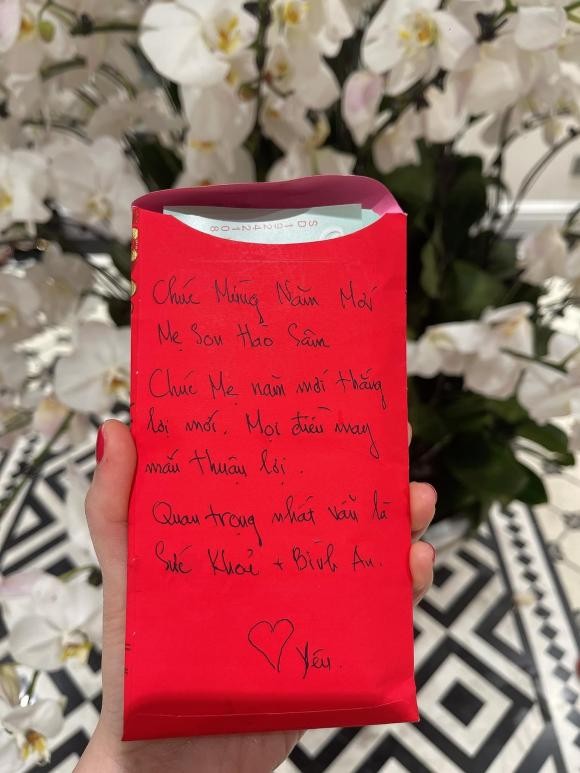 SD19242108
Chúc Mừng Năm Mới
Mẹ Son Hào Sâm
Chúc Mẹ năm mới thắng
lợi mới. Mọi điều may
mắn thuận lợi.
Quan trọng nhất vẫn là
Sức Khoẻ + Bình An.
Yêu.